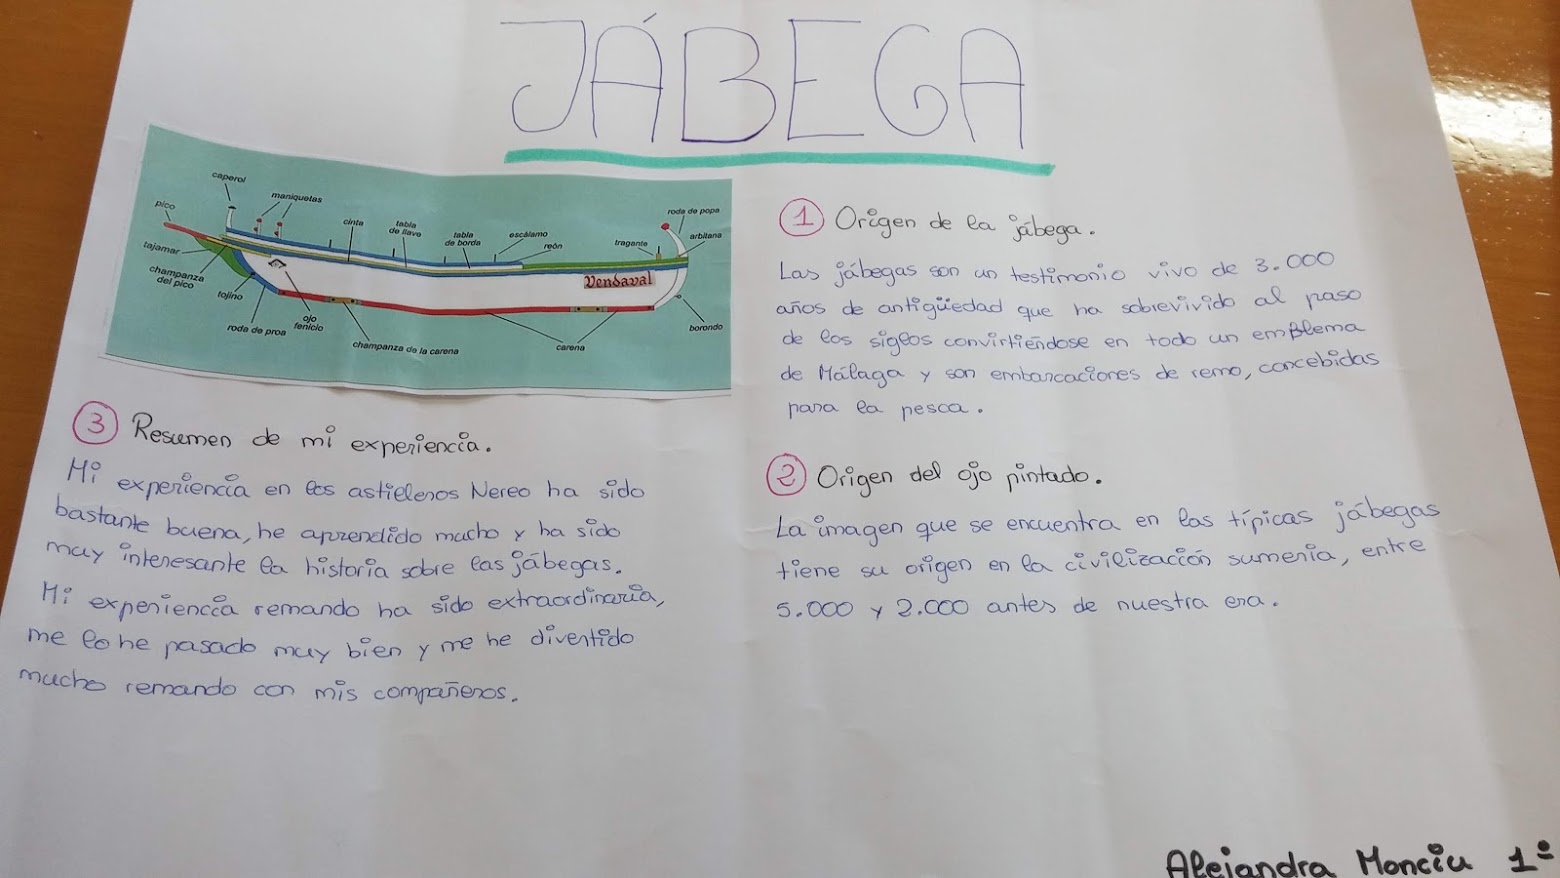 JÁBEGA
caperol
maniquetas
pico
cinta
tabla
de llave
tabla
de borda
escálamo
reón
tragante
roda de popa
arbitana
tajamar
champanza
del pico
tojino
roda de proa
ojo
fenicio
champanza de la carena
carena
borondo
Vendaval
1 Origen de la jábega.
Las jábegas son un testimonio vivo de 3.000
años de antigüedad que ha sobrevivido al paso
de los siglos convirtiéndose en todo un emblema
de Málaga y son embarcaciones de remo, concebidas
para la pesca.
2 Origen del ojo pintado.
La imagen que se encuentra en las típicas jábegas
tiene su origen en la civilización sumeria, entre
5.000 y 2.000 antes de nuestra era.
3 Resumen de mi experiencia.
Mi experiencia en los astilleros Nereo ha sido
bastante buena, he aprendido mucho y ha sido
muy interesante la historia sobre las jábegas.
Mi experiencia remando ha sido extraordinaria,
me lo he pasado muy bien y me he divertido
mucho remando con mis compañeros.
Alejandra Monciu 1º